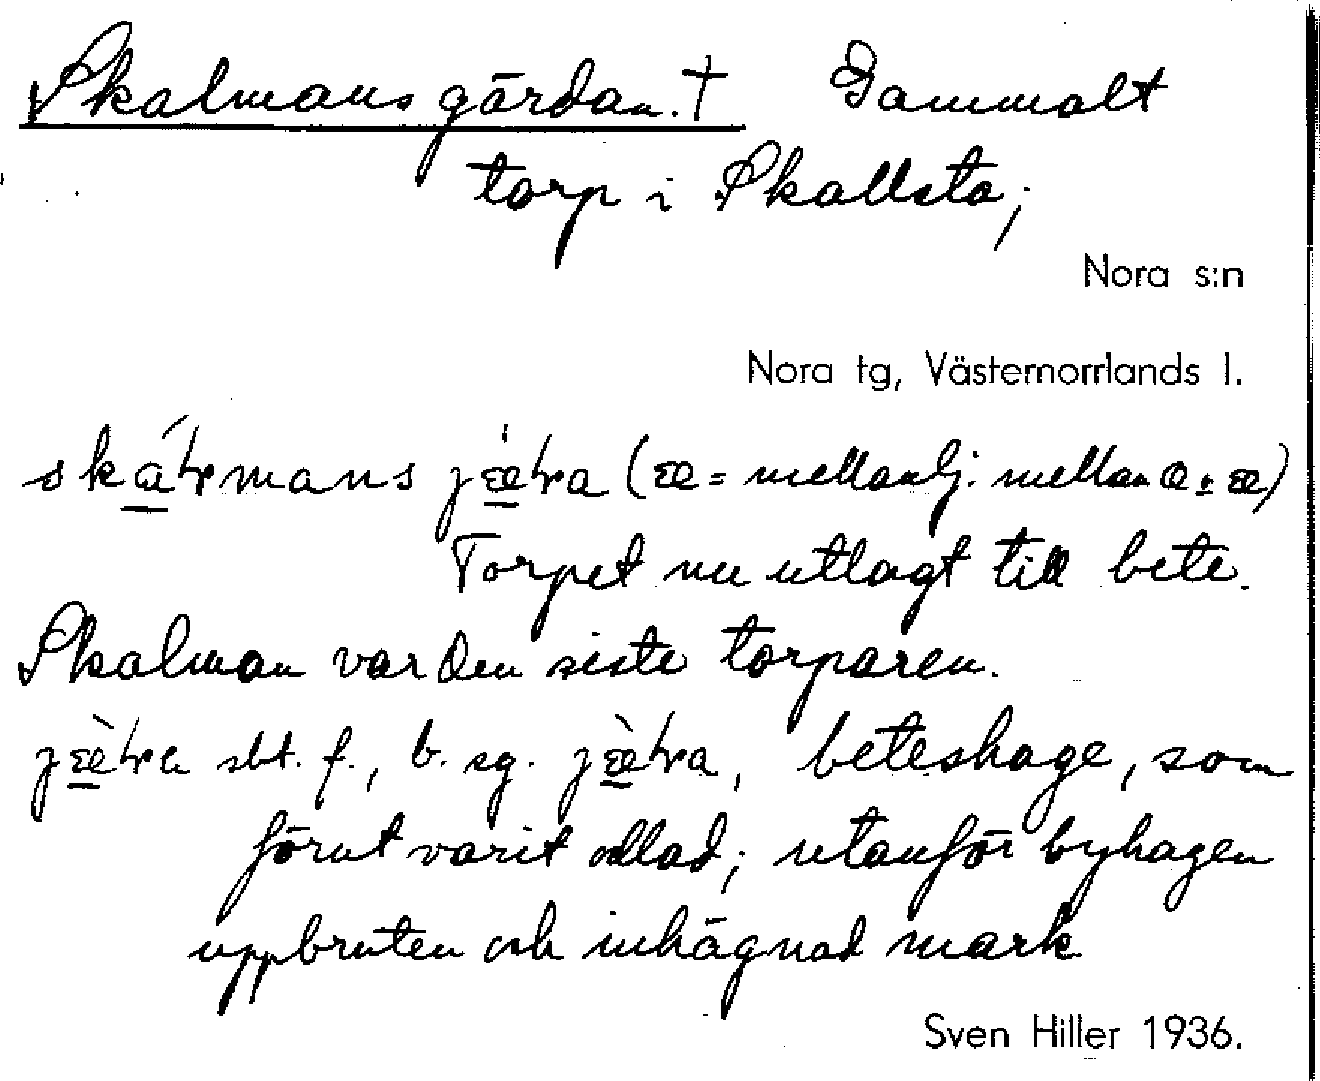 Skalmansgärdan. † Gammalt
torp i Skallsta;
Nora s:n
Nora tg, Västernorrlands l.
mellanlj. mellan a o. æ)
Torpet nu utlagt till bete.
Skalman var den siste torparen.
sbt. f., b. sg. beteshage, som
förut varit odlad; utanför byhagen
uppbruten och inhägnad mark
Sven Hiller 1936.